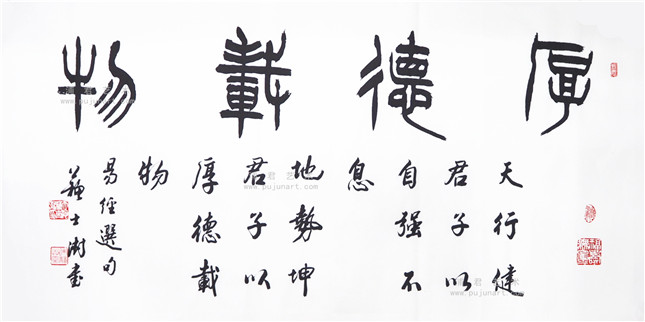 厚德載物
天行健
君子以
自强不
息
地勢坤
君子以
厚德載
物
易經選句
蘇士澍書
www.pujunart.com